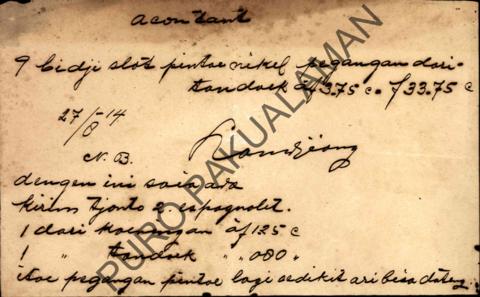 a contant
9 bidji slot pintoe nikel pegangan dari
tandoek à f3.75 c = f33.75 c
27/8-14
N. B.
dengen ini saia ada
kirim tjonto 2 espagnolet.
1 dari koeningan à f125 c
1 " tandoek " " 080 "
itoe pegangan pintoe lagi sedikit ari bisa dateng
PURO PAKUALAMAN